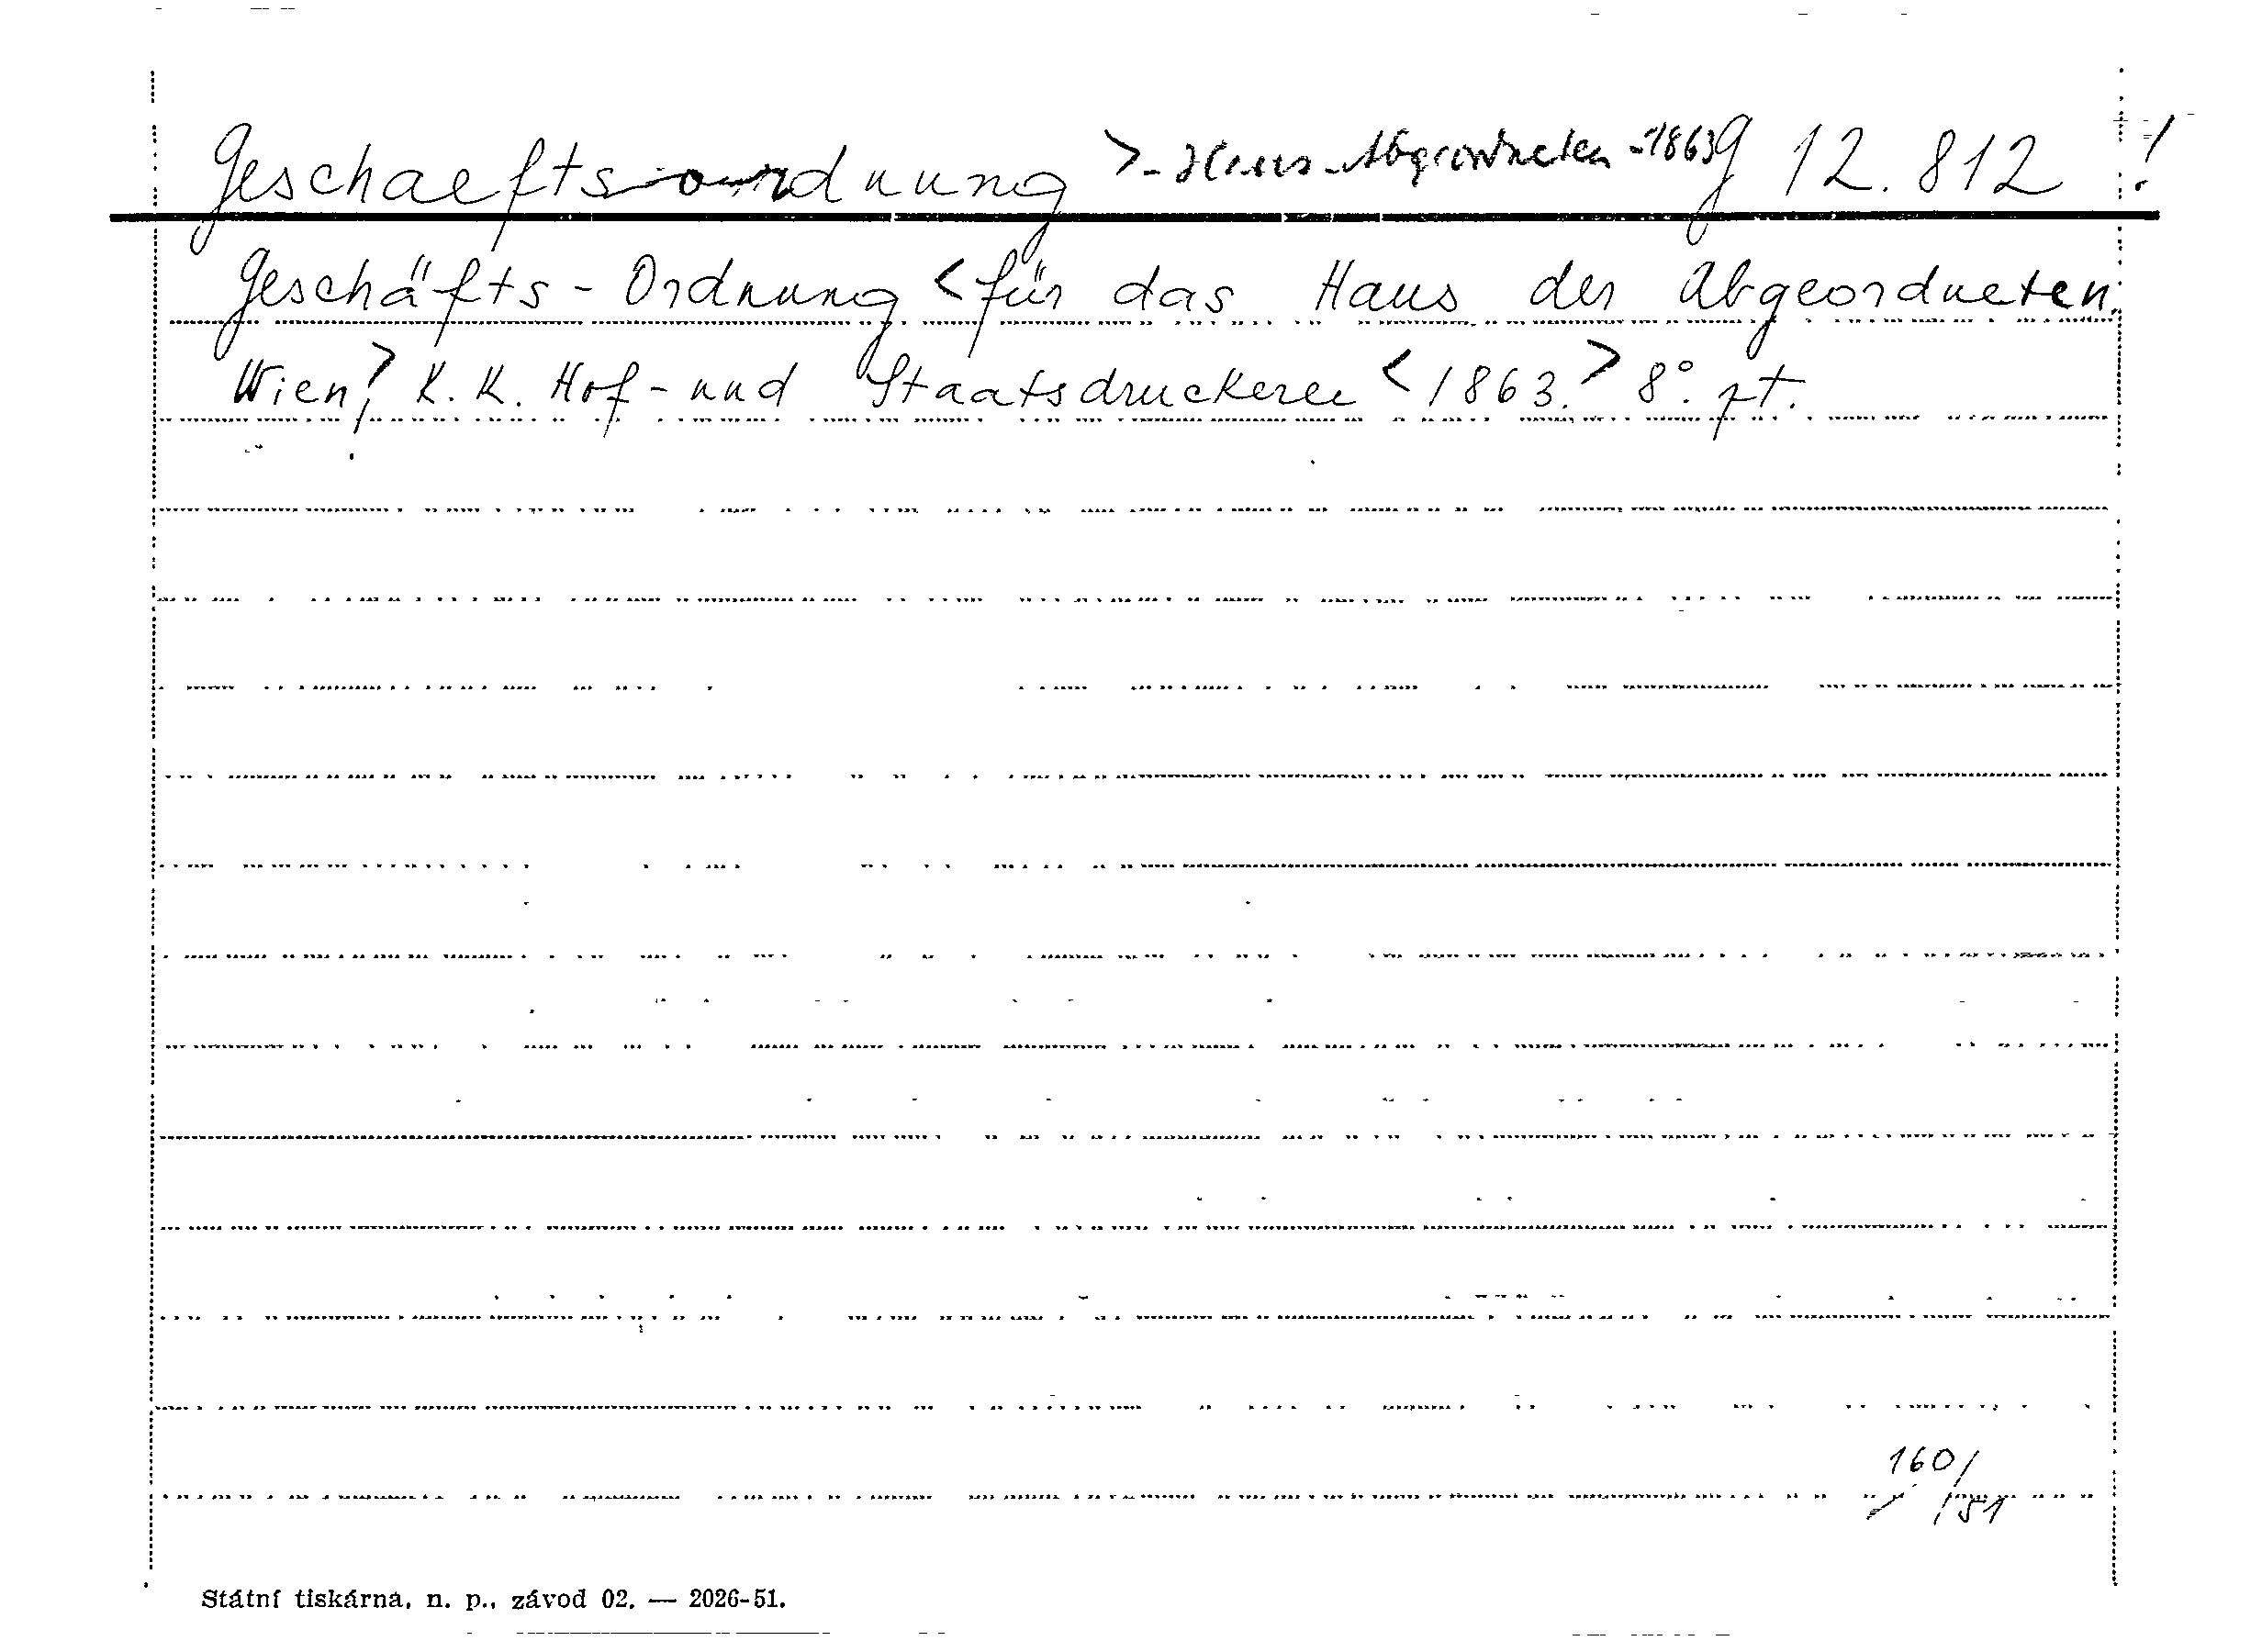 Geschaeftsordnung >-Haus-Abgeordneten-1863 g 12.812 !
Geschäfts-Ordnung <für das Haus der Abgeordneten.
Wien,> K. K. Hof- und Staatsdruckerei <1863.> 8°. pt.
160/
/51
Státní tiskárna, n. p., závod 02. — 2026-51.